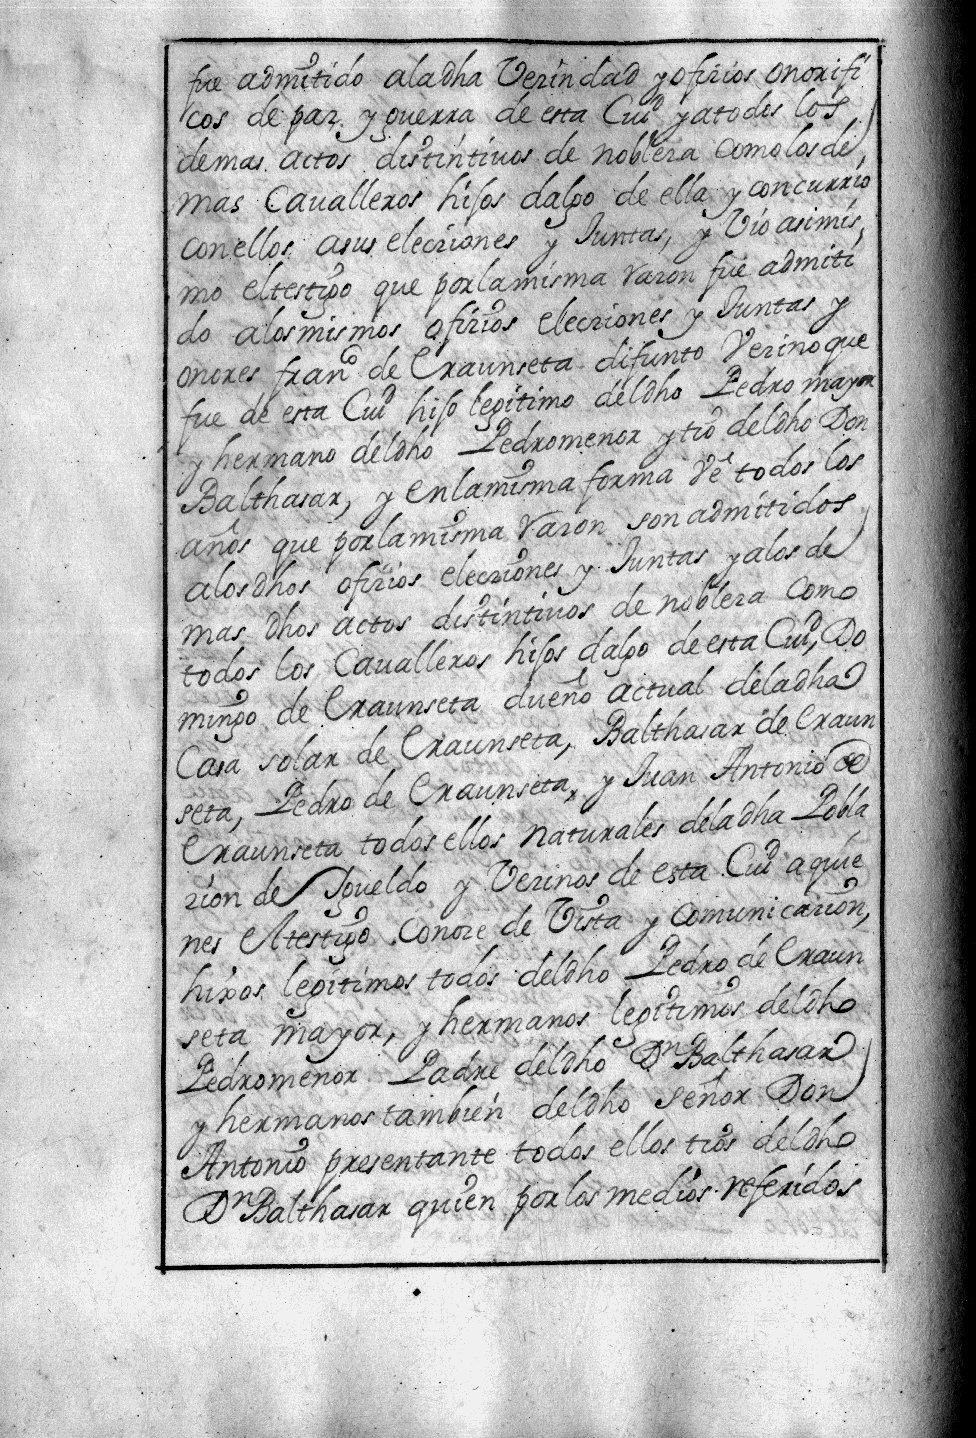 fue admitido aladha Vezindad yofizios onorifi
cos de paz y guerra de esta Ciud yatodos los
demas actos distintiuos de nobleza comolosde,
mas Caualleros hijos dalgo de ella y concurrio
conellos asus elecziones y Juntas, y Vio asimis,
mo eltestigo que porlamisma razon fue admiti
do alosmismos ofizios elecziones y Juntas y
onores franco de Eraunseta difunto Vezinoque
fue de esta Ciud hijo legitimo deldho Pedro mayor
y hermano deldho Pedromenor ytio deldho Don
Balthasar, y enlamisma forma Ve todos los
años que porlamisma razon son admitidos
alosdhos ofizios elecziones y Juntas yalos de
mas dhos actos distintiuos de nobleza como
todos los Caualleros hijos dalgo de esta Ciud, Do
mingo de Eraunseta dueño actual deladha
Casa solar de Eraunseta, Balthasar de Eraun
seta, Pedro de Eraunseta, y Juan Antonio de
Eraunseta todos ellos naturales deladha Pobla
zion de Igueldo y Vezinos de esta Ciud aquie
nes eltestigo conoze de Vista y comunicazion,
hijos legitimos todos deldho Pedro de Eraun
seta mayor, y hermanos legitimos deldho
Pedromenor Padre deldho Dn Balthasar
y hermanos tambien deldho señor Don
Antonio presentante todos ellos tios deldho
Dn Balthasar quien porlos medios referidos